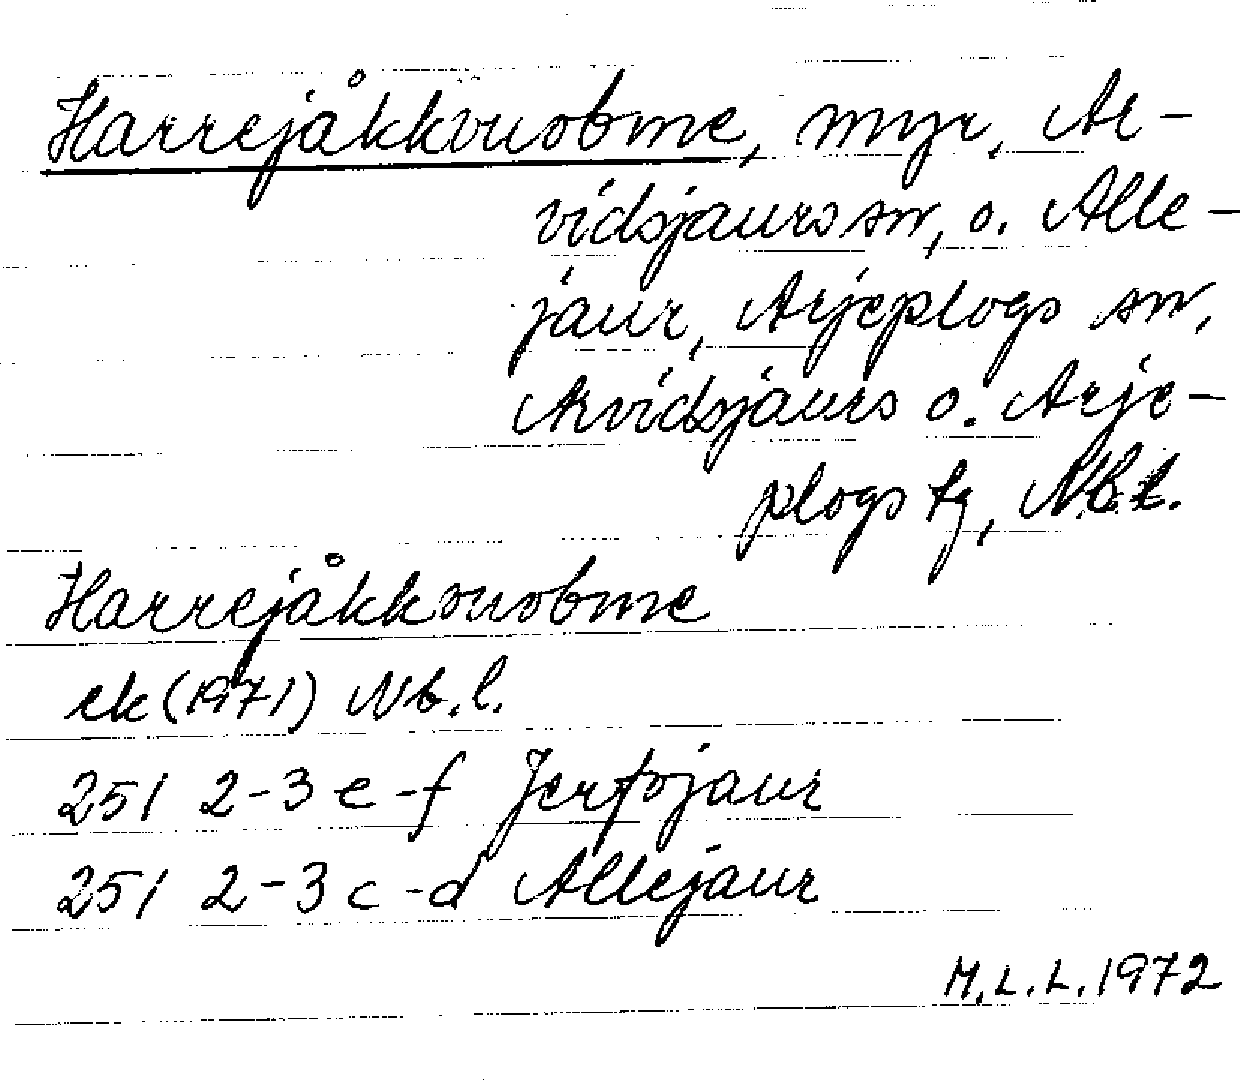 Harrejåkkvuobme, myr, Ar-
vidsjaurs sn, o. Alle-
jaur, Arjeplogs sn,
Arvidsjaurs o. Arje-
plogs tg, Nb.l.
Harrejåkkvuobme
ek (1971) Nb.l.
251 2-3 e-f Jerfojaur
251 2-3 c-d Allejaur
M.L.L. 1972